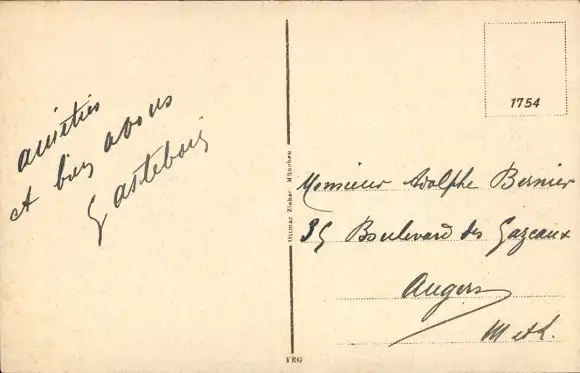 amitiés
et bien à vous
Gastebois
Ottmar Zieher, München
FEG
1754
Monsieur Adolphe Bernier
35 Boulevard des Gazeaux
Angers
M et L.